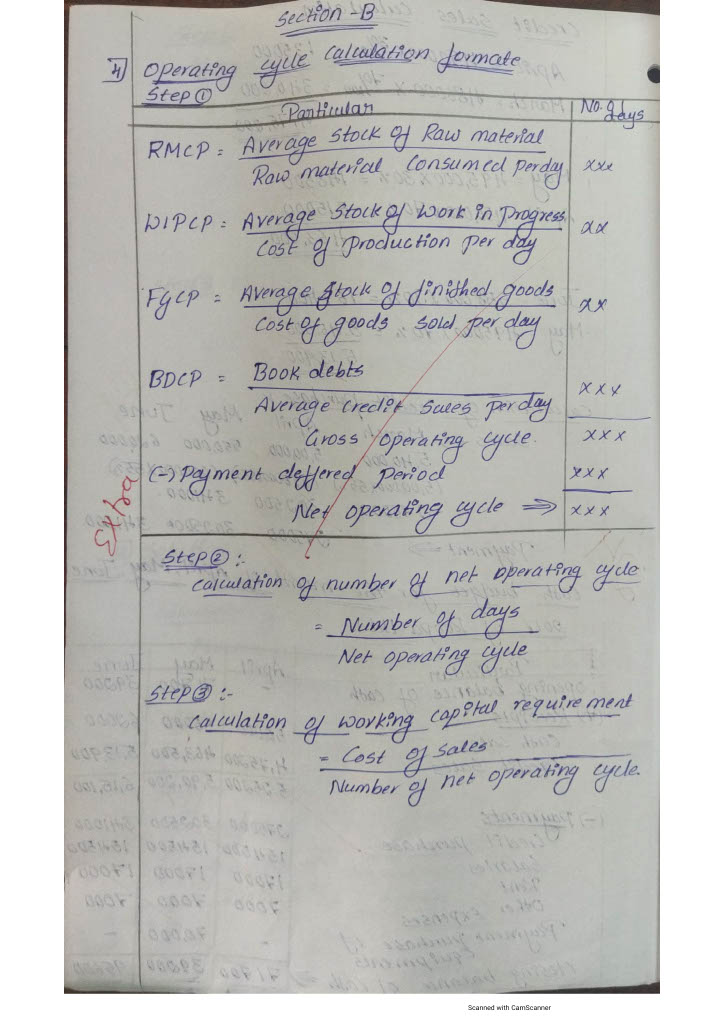 Section - B
4) Operating cycle calculation formate
Step ①
Particular No. of days
RMCP = Average stock of Raw material
Raw material Consumed per day xxx
WIPCP = Average stock of work in progress
Cost of production per day xx
FGCP = Average stock of finished goods
Cost of goods sold per day xx
BDCP = Book debts
Average credit sales per day xxx
Gross operating cycle. xxx
(-) Payment deffered period xxx
Net operating cycle ⇒ xxx
Extra
Step ② :-
Calculation of number of net operating cycle
= Number of days
Net operating cycle
Step ③ :-
Calculation of working capital requirement
= Cost of sales
Number of net operating cycle.
Scanned with CamScanner